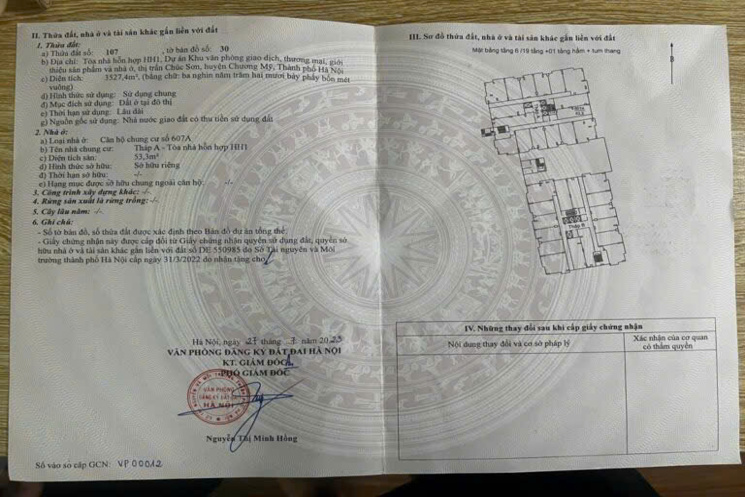 II. Thửa đất, nhà ở và tài sản khác gắn liền với đất
1. Thửa đất:
a) Thửa đất số: 107 , tờ bản đồ số: 30
b) Địa chỉ: Tòa nhà hỗn hợp HH1, Dự án Khu văn phòng giao dịch, thương mại, giới
thiệu sản phẩm và nhà ở, thị trấn Chúc Sơn, huyện Chương Mỹ, Thành phố Hà Nội
c) Diện tích: 3527,4m², (bằng chữ: ba nghìn năm trăm hai mươi bảy phẩy bốn mét
vuông)
d) Hình thức sử dụng: Sử dụng chung
đ) Mục đích sử dụng: Đất ở tại đô thị
e) Thời hạn sử dụng: Lâu dài
g) Nguồn gốc sử dụng: Nhà nước giao đất có thu tiền sử dụng đất
2. Nhà ở:
a) Loại nhà ở: Căn hộ chung cư số 607A
b) Tên nhà chung cư: Tháp A - Tòa nhà hỗn hợp HH1
c) Diện tích sàn: 53,3m²
d) Hình thức sở hữu: Sở hữu riêng
đ) Thời hạn sở hữu: -/-
e) Hạng mục được sở hữu chung ngoài căn hộ: -/-
3. Công trình xây dựng khác: -/-
4. Rừng sản xuất là rừng trồng: -/-
5. Cây lâu năm: -/-
6. Ghi chú:
- Số tờ bản đồ, số thửa đất được xác định theo Bản đồ dự án tổng thể.
- Giấy chứng nhận này được cấp đổi từ Giấy chứng nhận quyền sử dụng đất, quyền sở
hữu nhà ở và tài sản khác gắn liền với đất số DE 550985 do Sở Tài nguyên và Môi
trường thành phố Hà Nội cấp ngày 31/3/2022 do nhận tặng cho
Hà Nội, ngày tháng năm 2023
VĂN PHÒNG ĐĂNG KÝ ĐẤT ĐAI HÀ NỘI
KT. GIÁM ĐỐC
PHÓ GIÁM ĐỐC
VĂN PHÒNG
ĐĂNG KÝ ĐẤT ĐAI
HÀ NỘI
Nguyễn Thị Minh Hồng
Số vào sổ cấp GCN: VP 00012
III. Sơ đồ thửa đất, nhà ở và tài sản khác gắn liền với đất
Mặt bằng tầng 6 /19 tầng +01 tầng hầm + tum thang
B
Tháp B
IV. Những thay đổi sau khi cấp giấy chứng nhận
Nội dung thay đổi và cơ sở pháp lý
Xác nhận của cơ quan
có thẩm quyền